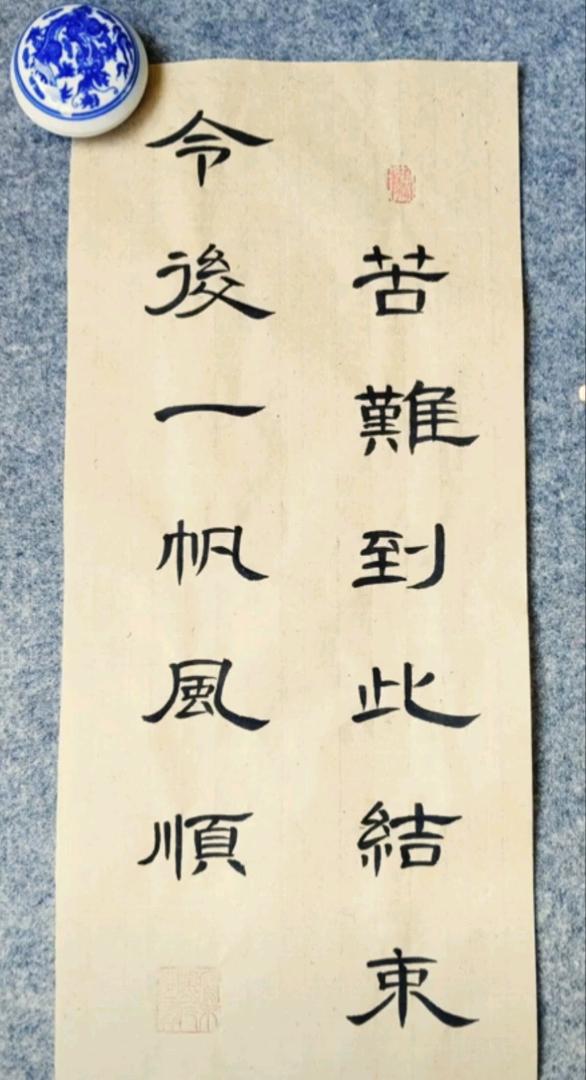 苦難到此結束
今後一帆風順